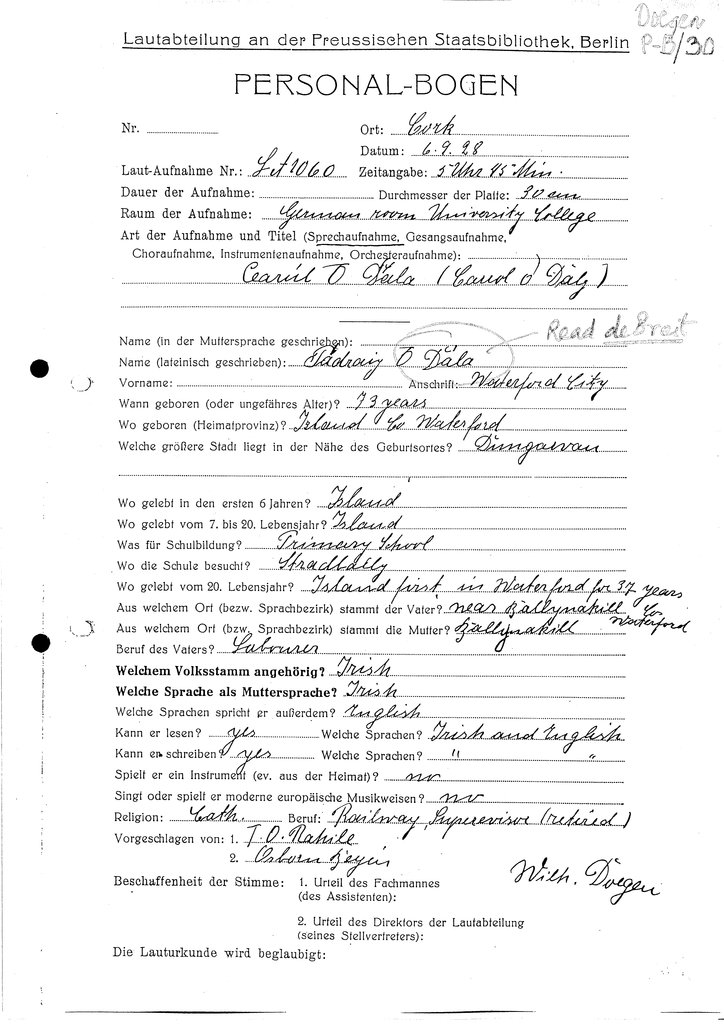 Doegen
P-B/30
Lautabteilung an der Preussischen Staatsbibliothek, Berlin
PERSONAL-BOGEN
Nr. Ort: Cork
Datum: 6.9.28
Laut-Aufnahme Nr.: LA 1060 Zeitangabe: 5 Uhr 45 Min.
Dauer der Aufnahme: Durchmesser der Platte: 30 cm
Raum der Aufnahme: German room University College
Art der Aufnahme und Titel (Sprechaufnahme, Gesangsaufnahme,
Choraufnahme, Instrumentenaufnahme, Orchesteraufnahme):
Cearúl Ó Dála (Carol O Daly)
Read de Breit
Name (in der Muttersprache geschrieben):
Name (lateinisch geschrieben): Pádraig Ó Dála
Vorname: Anschrift: Waterford City
Wann geboren (oder ungefähres Alter)? 73 years
Wo geboren (Heimatprovinz)? Island Co Waterford
Welche größere Stadt liegt in der Nähe des Geburtsortes? Dungarvan
Wo gelebt in den ersten 6 Jahren? Island
Wo gelebt vom 7. bis 20. Lebensjahr? Island
Was für Schulbildung? Primary School
Wo die Schule besucht? Stradbally
Wo gelebt vom 20. Lebensjahr? Island first, in Waterford for 37 years
Aus welchem Ort (bezw. Sprachbezirk) stammt der Vater? near Ballynakill Co. Waterford
Aus welchem Ort (bzw. Sprachbezirk) stammt die Mutter? Ballynakill
Beruf des Vaters? Labourer
Welchem Volksstamm angehörig? Irish
Welche Sprache als Muttersprache? Irish
Welche Sprachen spricht er außerdem? English
Kann er lesen? yes Welche Sprachen? Irish and English
Kann er schreiben? yes Welche Sprachen? " "
Spielt er ein Instrument (ev. aus der Heimat)? no
Singt oder spielt er moderne europäische Musikweisen? no
Religion: Cath. Beruf: Railway Supervisor (retired)
Vorgeschlagen von: 1. T. O. Rahile
2. Osborn Bergin
Wilh. Doegen
Beschaffenheit der Stimme: 1. Urteil des Fachmannes
(des Assistenten):
2. Urteil des Direktors der Lautabteilung
(seines Stellvertreters):
Die Lauturkunde wird beglaubigt: